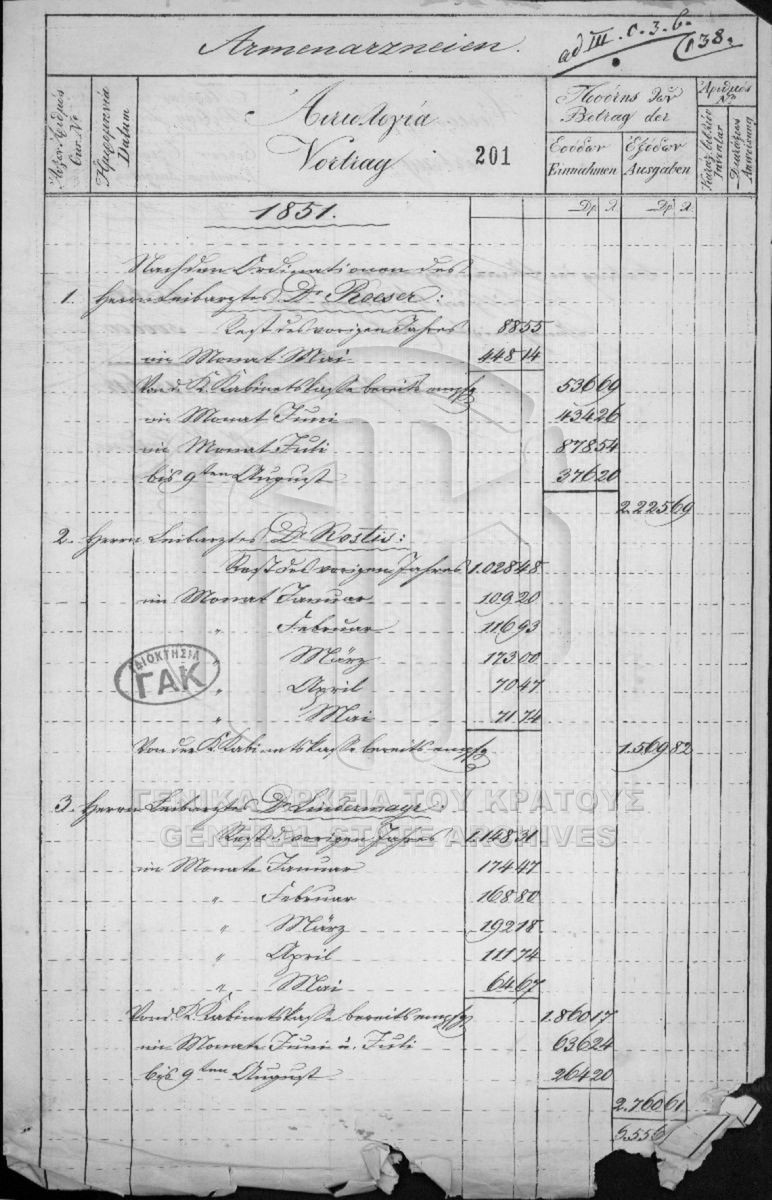 Armenarzneien.
ad III. C. 3. b.
138.
Αὔξων Ἀριθμός
Curr. Nr
Ἡμερομηνία
Datum
Αἰτιολογία
Vortrag
201
Ποσότης τῶν
Betrag der
Ἐσόδων
Einnahmen
Ἐξόδων
Ausgaben
Ἀριθμός
Nr
Καταλ. βιβλίου
Inventar
Διατάξεως
Anweisung
Δρ. Λ. Δρ. Λ.
1851.
Nach den Ordinationen des
1. Herrn Leibarztes Dr Roeser:
Rest des vorigen Jahres 88 55
im Monat Mai 448 14
Von d. K. Kabinetskasse bereits empfg 536 69
im Monat Juni 434 26
im Monat Juli 878 54
bis 9ten August 376 20
2.225 69
2. Herrn Leibarztes Dr Rostis:
Rest des vorigen Jahres 1.028 48
im Monat Januar 109 20
" Februar 116 93
März 173 00
" April 70 47
" Mai 71 74
Von der K. Kabinetskasse bereits empfg 1.569 82
3. Herrn Leibarztes Dr Lindermayr:
Rest d. vorigen Jahres 1.148 31
im Monate Januar 174 47
" Februar 168 80
" März 192 18
" April 111 74
" Mai 64 67
Von d. K. Kabinetskasse bereits empfg 1.860 17
im Monate Juni u. Juli 636 24
bis 9ten August 264 20
2.760 61
6.556
ΙΔΙΟΚΤΗΣΙΑ
ΓΑΚ
ΓΕΝΙΚΑ ΑΡΧΕΙΑ ΤΟΥ ΚΡΑΤΟΥΣ
GENERAL STATE ARCHIVES